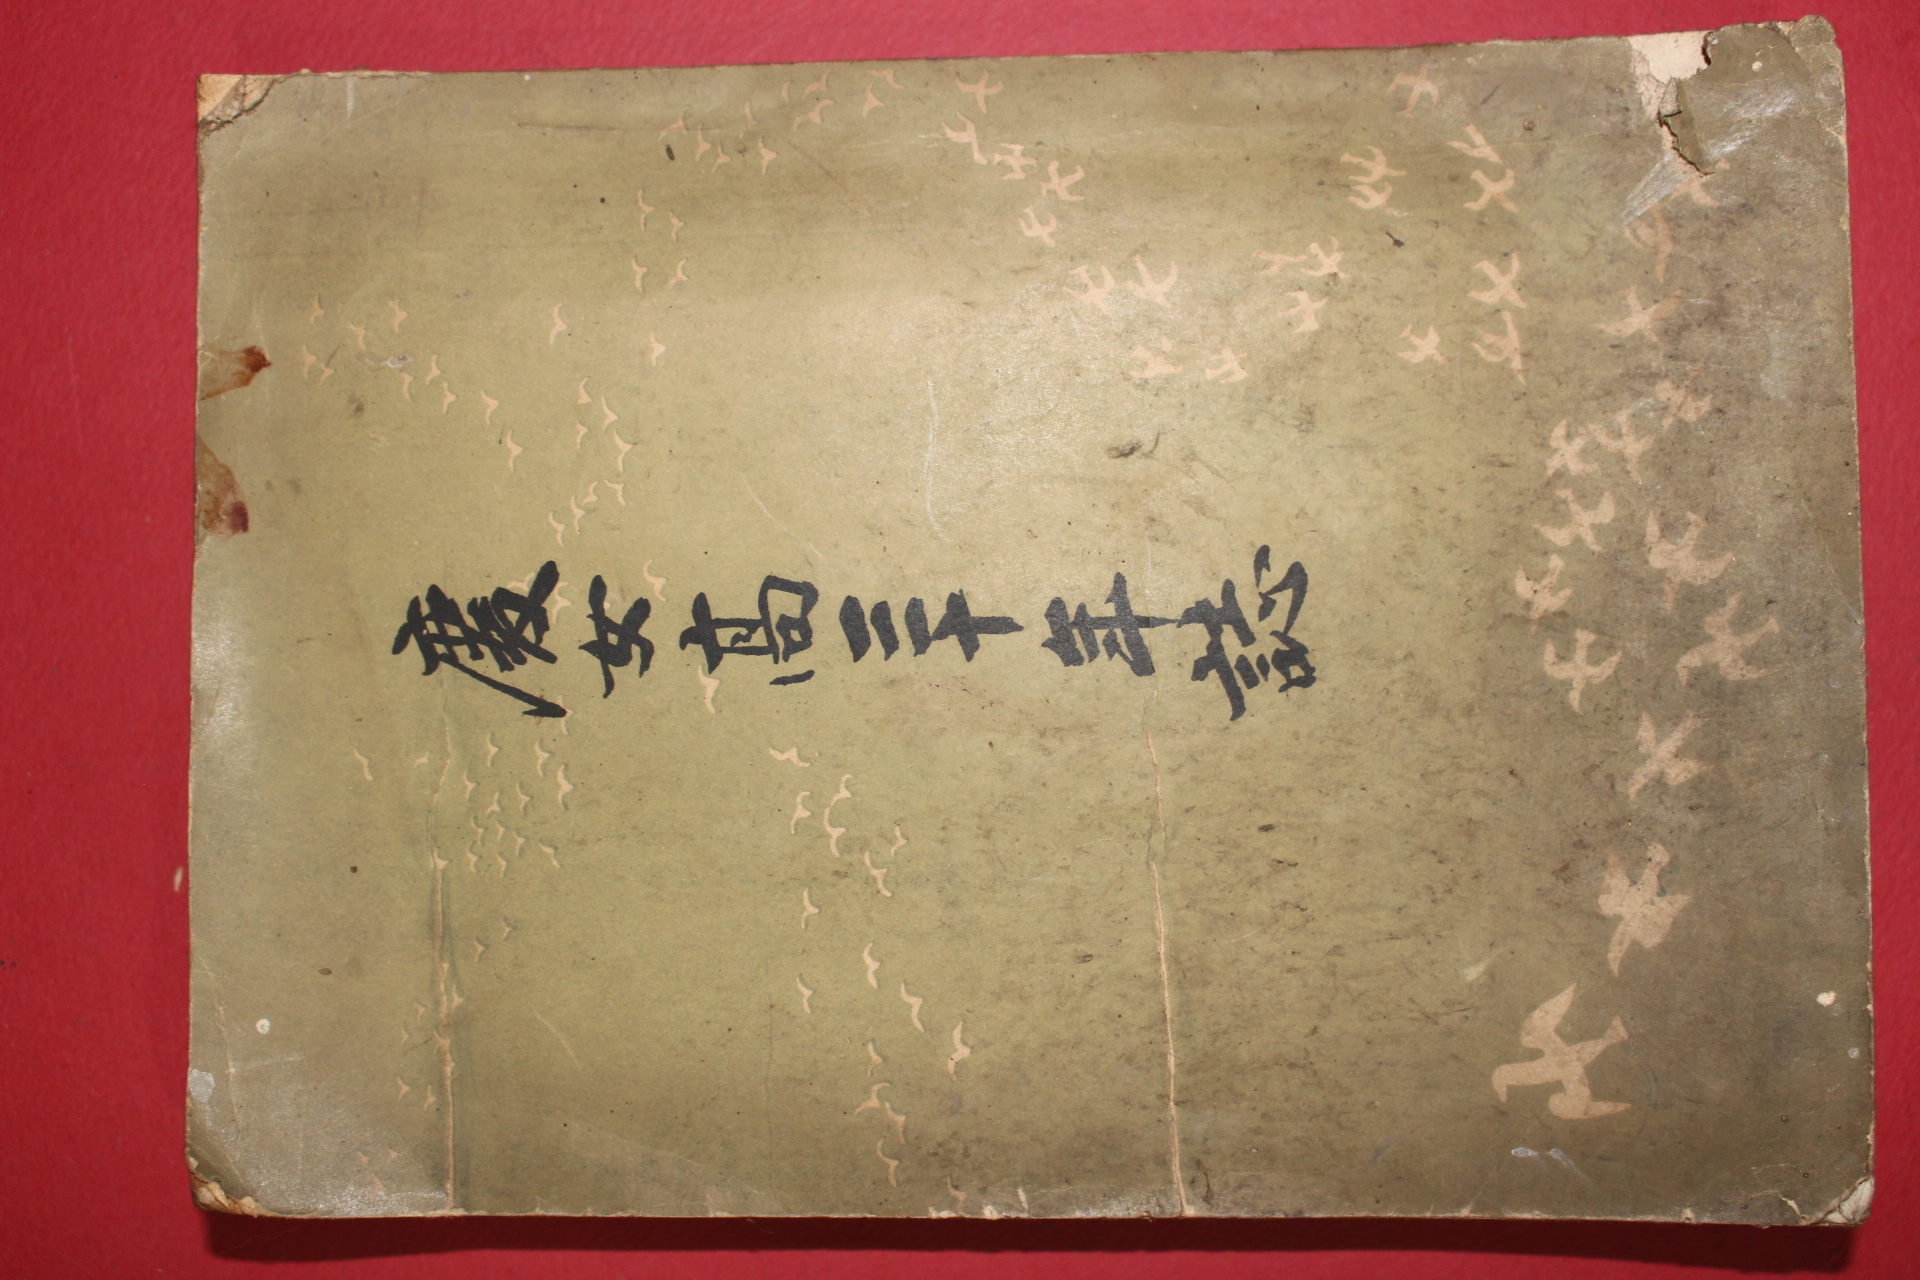 慶女高二十年誌